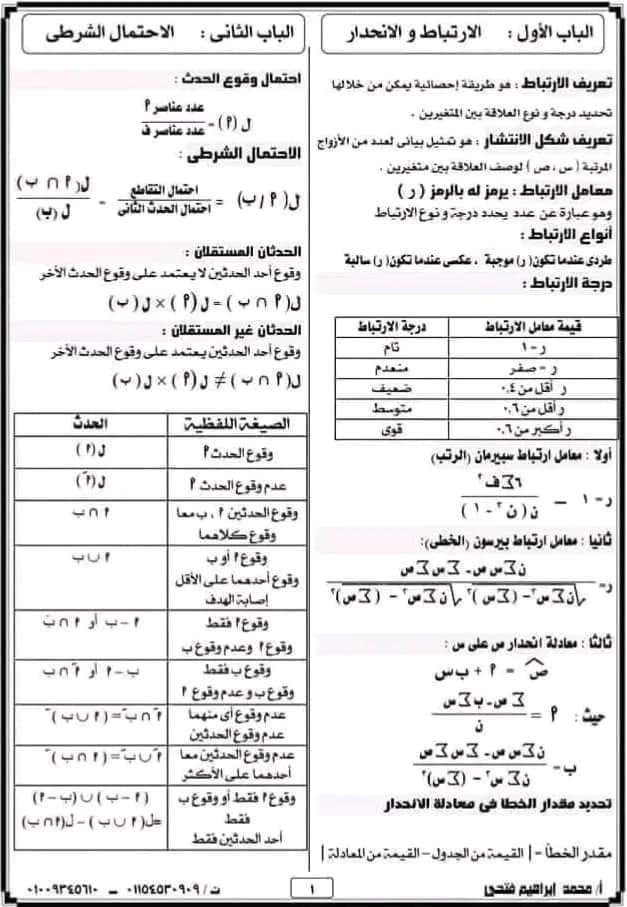 الباب الأول : الارتباط و الانحدار
تعريف الارتباط : هو طريقة إحصائية يمكن من خلالها
تحديد درجة و نوع العلاقة بين المتغيرين .
تعريف شكل الانتشار : هو تمثيل بيانى لعدد من الأزواج
المرتبة ( س ، ص ) لوصف العلاقة بين متغيرين .
معامل الارتباط : يرمز له بالرمز ( ر )
وهو عبارة عن عدد يحدد درجة و نوع الارتباط
أنواع الارتباط :
طردى عندما تكون( ر) موجبة ، عكسى عندما تكون( ر) سالبة
درجة الارتباط :
قيمة معامل الارتباط درجة الارتباط
ر = ١ تام
ر = صفر منعدم
ر أقل من ٠,٤ ضعيف
ر أقل من ٠,٦ متوسط
ر أكبر من ٠,٦ قوى
أولا : معامل ارتباط سبيرمان (الرتب)
ر = ١ − ٦∑ف٢ / ن(ن٢ - ١)
ثانيا : معامل ارتباط بيرسون (الخطى):
ر = ن∑س ص - ∑س∑ص / √ن∑س٢ - (∑س)٢ √ن∑ص٢ - (∑ص)٢
ثالثا : معادلة انحدار ص على س :
ص^ = ٢ + ب س
حيث : ٢ = ∑ص - ب∑س / ن
ب = ن∑س ص - ∑س∑ص / ن∑س٢ - (∑س)٢
تحديد مقدار الخطا فى معادلة الانحدار
مقدر الخطأ = | القيمة من الجدول - القيمة من المعادلة |
الباب الثانى : الاحتمال الشرطى
احتمال وقوع الحدث :
ل(٢) = عدد عناصر ٢ / عدد عناصر ف
الاحتمال الشرطى :
ل(٢ / ب) = احتمال التقاطع / احتمال الحدث الثانى = ل(٢ ∩ ب) / ل(ب)
الحدثان المستقلان :
وقوع أحد الحدثين لا يعتمد على وقوع الحدث الأخر
ل(٢ ∩ ب) = ل(٢) × ل(ب)
الحدثان غير المستقلان :
وقوع أحد الحدثين يعتمد على وقوع الحدث الأخر
ل(٢ ∩ ب) ≠ ل(٢) × ل(ب)
الصيغة اللفظية الحدث
وقوع الحدث ٢ ل(٢)
عدم وقوع الحدث ٢ ل(٢َ)
وقوع الحدثين ٢ ، ب معا ٢ ∩ ب
وقوع كلاهما
وقوع ٢ أو ب ٢ ∪ ب
وقوع أحدهما على الأقل
إصابة الهدف
وقوع ٢ فقط ٢ - ب أو ٢ ∩ بَ
وقوع ٢ وعدم وقوع ب
وقوع ب فقط ب - ٢ أو ٢َ ∩ ب
وقوع ب و عدم وقوع ٢
عدم وقوع أى منهما ٢َ ∩ بَ = (٢ ∪ ب)َ
عدم وقوع الحدثين
عدم وقوع الحدثين معا ٢َ ∪ بَ = (٢ ∩ ب)َ
أحدهما على الأكثر
وقوع ٢ فقط أو وقوع ب (٢ - ب) ∪ (ب - ٢)
فقط =ل(٢ ∪ ب) - ل(٢ ∩ ب)
أحد الحدثين فقط
أ/ محمد إبراهيم فتحى
١
ت / ٠١١٥٤٥٣٠٩٠٩ ــ ٠١٠٠٩٣٤٥٦١٠